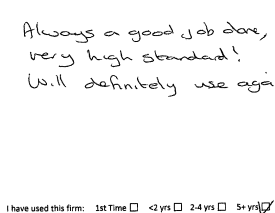 Always a good job done,
very high standard!
Will definitely use agai
I have used this firm: 1st Time ☐ <2 yrs ☐ 2-4 yrs ☐ 5+ yrs ☑